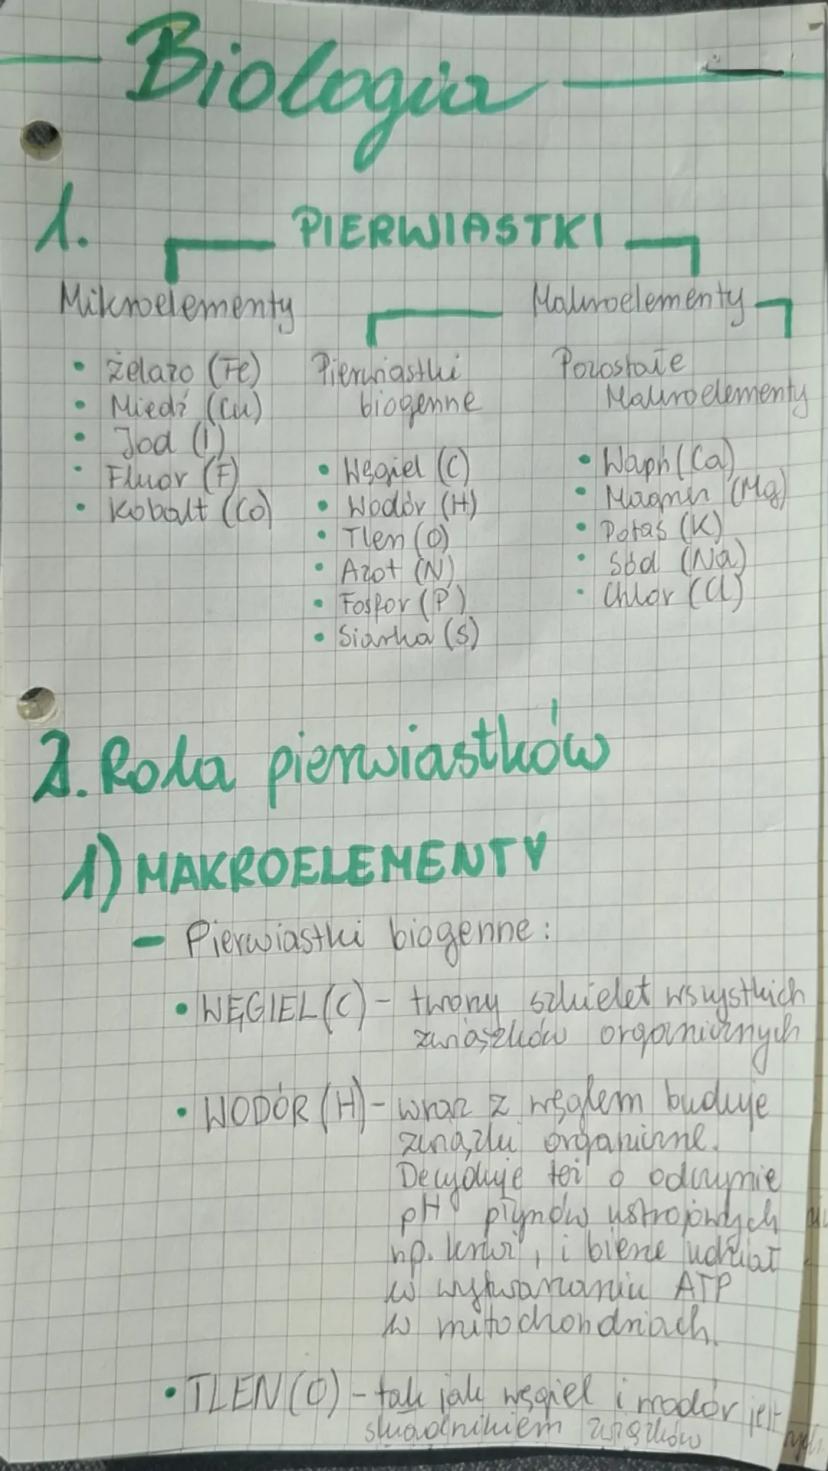 Biologia
1. PIERWIASTKI
Mikroelementy
Makroelementy
• Żelazo (Fe)
• Miedź (Cu)
• Jod (I)
• Fluor (F)
• Kobalt (Co)
Pierwiastki
biogenne
• Węgiel (C)
• Wodór (H)
• Tlen (O)
• Azot (N)
• Fosfor (P)
• Siarka (S)
Pozostałe
Makroelementy
• Wapń (Ca)
• Magnez (Mg)
• Potas (K)
• Sód (Na)
• Chlor (Cl)
2. Rola pierwiastków
1) MAKROELEMENTY
– Pierwiastki biogenne:
• WĘGIEL (C) – tworzy szkielet wszystkich
związków organicznych
• WODÓR (H) – wraz z węglem buduje
związki organiczne.
Decyduje też o odczynie
pH płynów ustrojowych
np. krwi, i bierze udział
w wytwarzaniu ATP
w mitochondriach.
• TLEN (O) – tak jak węgiel i wodór jest
składnikiem związków